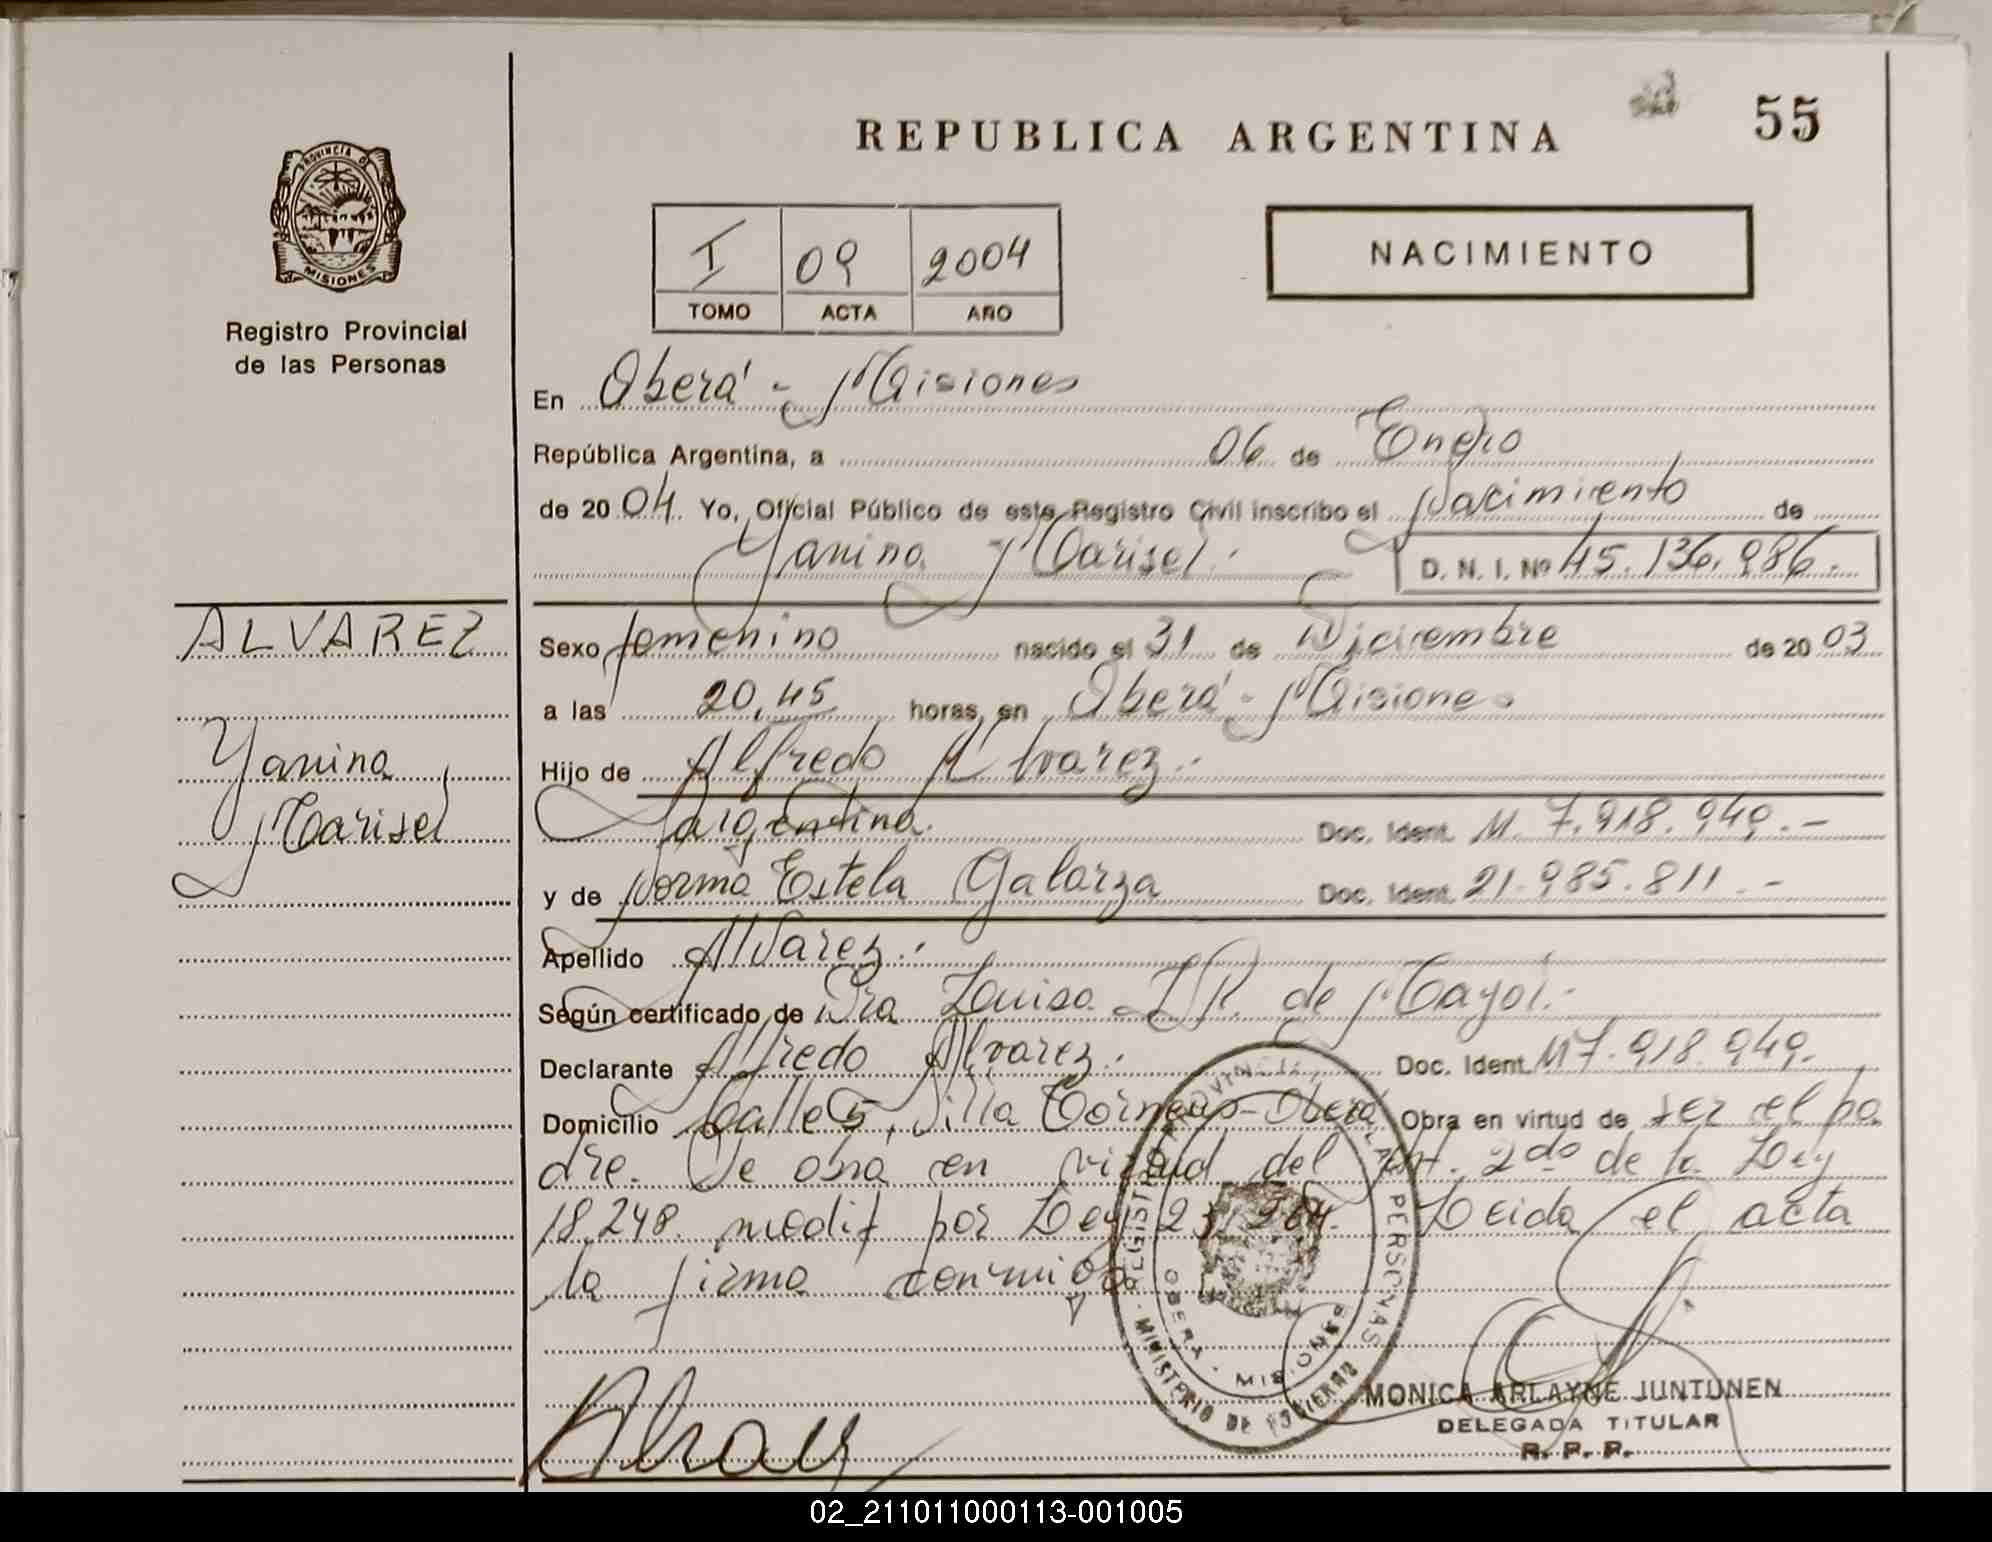 REPUBLICA ARGENTINA
55
PROVINCIA DE
MISIONES
Registro Provincial
de las Personas
I 09 2004
TOMO ACTA AÑO
NACIMIENTO
En Oberá - Misiones
República Argentina, a 06 de Enero
de 2004. Yo, Oficial Público de este Registro Civil inscribo el Nacimiento de
Yanina Marisel. D. N. I. Nº 45.136.986.
ALVAREZ
Yanina
Marisel
Sexo femenino nacido el 31 de Diciembre de 2003
a las 20,45 horas, en Oberá - Misiones
Hijo de Alfredo Alvarez.
argentina. Doc. Ident. M. 7.918.949.-
y de Norma Estela Galarza Doc. Ident. 21.985.811.-
Apellido Alvarez.
Según certificado de Dra Luisa R. de Mayol.-
Declarante Alfredo Alvarez. Doc. Ident. M 7.918.949.
Domicilio Calle 5, Villa Oberá Obra en virtud de ser el pa
dre. Se obra en virtud del Art. 2do de la Ley
18.248. modif por Ley 23.264. Leida el acta
la firma conmigo
REGISTRO PROVINCIAL LAS PERSONAS
OBERA - MISIONES
MINISTERIO DE GOBIERNO
MONICA ARLAYNE JUNTUNEN
DELEGADA TITULAR
R. P. P.
02_211011000113-001005